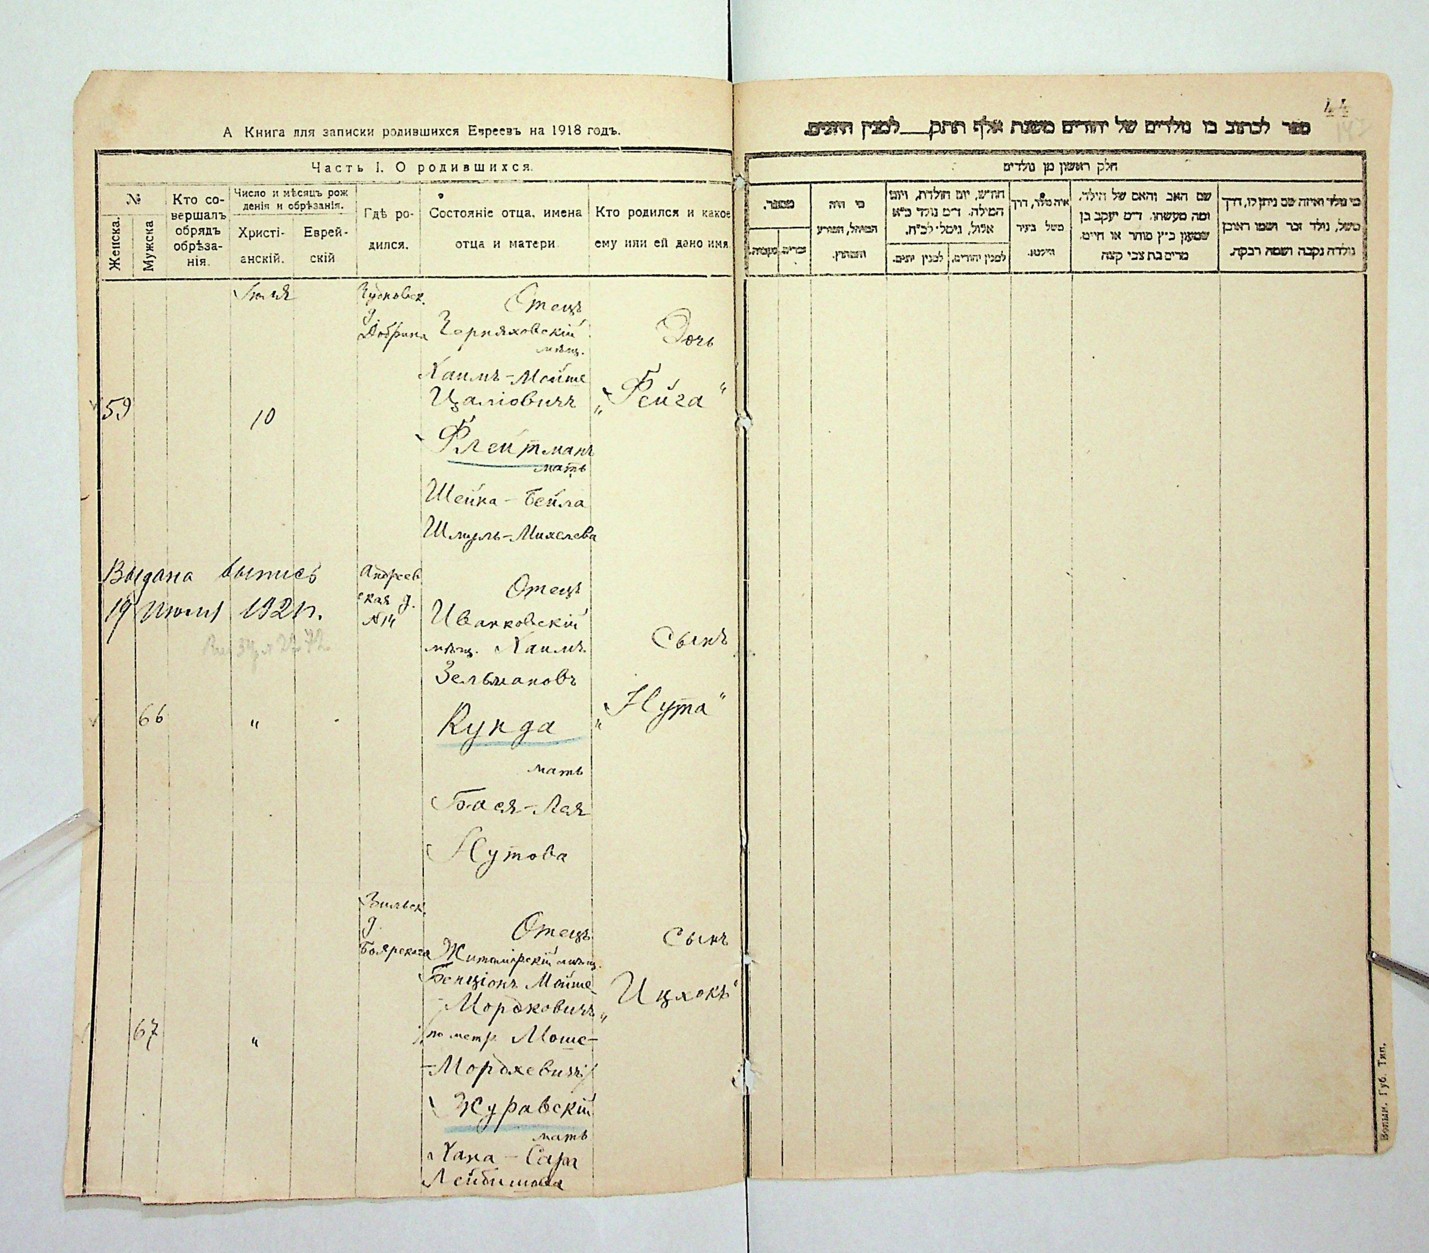 А Книга для записки родившихся Евреевъ на 1918 годъ.
Часть I. О родившихся.
№
Женска.
Мужска
Кто со-
вершалъ
обрядъ
обрѣза-
нія.
Число и мѣсяцъ рож
денія и обрѣзанія.
Христі-
анскій.
Еврей-
скій
Гдѣ ро-
дился.
Состояніе отца, имена
отца и матери
Кто родился и какое
ему или ей дано имя
Іюля
д
Добрина
Отецъ
Черняховскій
мѣщ.
Хаимъ-Мойше
Цаліовичъ
Флейтманъ
мать
Шейна-Бейла
Шмуль-Михелева
Дочь
„Фейга"
59
10
Выдана выпись
19 Июля 1921г.
Андреев
ская д.
№14
Отецъ
Иванковскій
мѣщ. Хаимъ
Зельмановъ
Кунда
мать
Бася-Лея
Нутова
Сынъ
„Нута"
66
"
Вильск.
д.
Боярскага
Отецъ
Житомірскій мѣщ.
Бенціонъ Мойше-
Мордковичъ
по метр. Моше-
Мордхевичъ
Журавскій
мать
Хана-Сара
Лейбишова
Сынъ
„Ицхокъ"
67
"
44
ספר לכתוב בו נולדים של יהודים משנת אלף תתק___למנין היונים.
חלק ראשון מן נולדים
מספר.
זכרים.
נקבות.
מי היה
המוהל, הסורע
והמוצץ.
החדש, יום הולדת, ויום
המילה. ד"מ נולד כ"א
אלול, נימול כ"ח.
למנין יהודים.
למנין יונים.
איה נולד, דרך
משל בעיר
ווילנא.
שם האב והאם של הילד.
ומה מעשהו. ד"מ יעקב בן
שמעון כ"ץ סוחר או חייט.
מרים בת צבי קצה
מי נולד ואיזה שם ניתן לו, דרך
משל, נולד זכר ושמו ראובן
נולדה נקבה ושמה רבקה.
Волын. Губ. Тип.